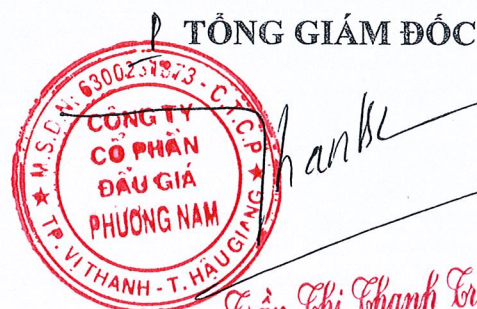 TỔNG GIÁM ĐỐC
M.S.D.N: 6300231873 - C.T.C.P
CÔNG TY
CỔ PHẦN
ĐẤU GIÁ
PHƯƠNG NAM
TP. VỊ THANH - T. HẬU GIANG
Trần Thị Thanh